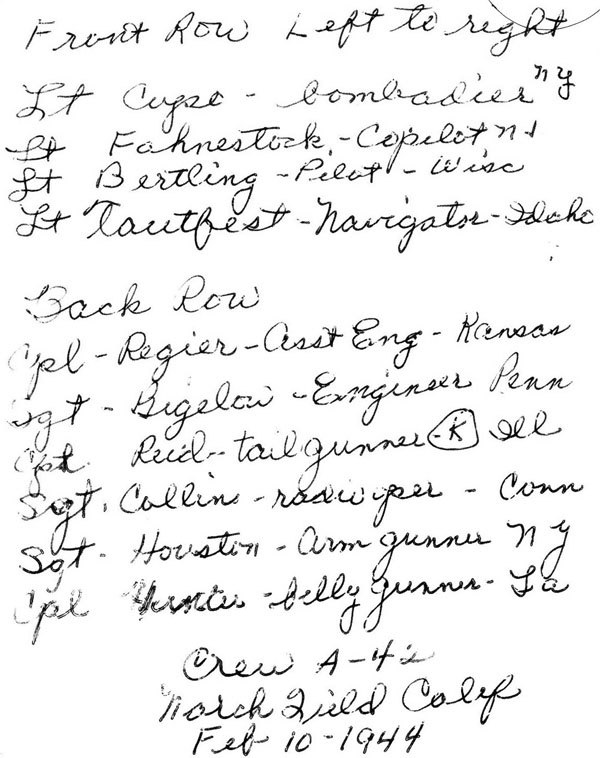 Front Row Left to right
Lt Cupo - bombadier NY
Lt Fahnestock - Copilot NJ
Lt Bertling - Pilot - Wisc
Lt Tautfest - Navigator - Idaho
Back Row
Cpl - Regier - Asst Eng - Kansas
Sgt - Bigelow - Engineer Penn
Cpl Reid - tail gunner - K Ill
Sgt. Collins - radio oper - Conn
Sgt - Houston - Arm gunner NY
Cpl - belly gunner - La
Crew A-42
March Field Calif
Feb 10-1944